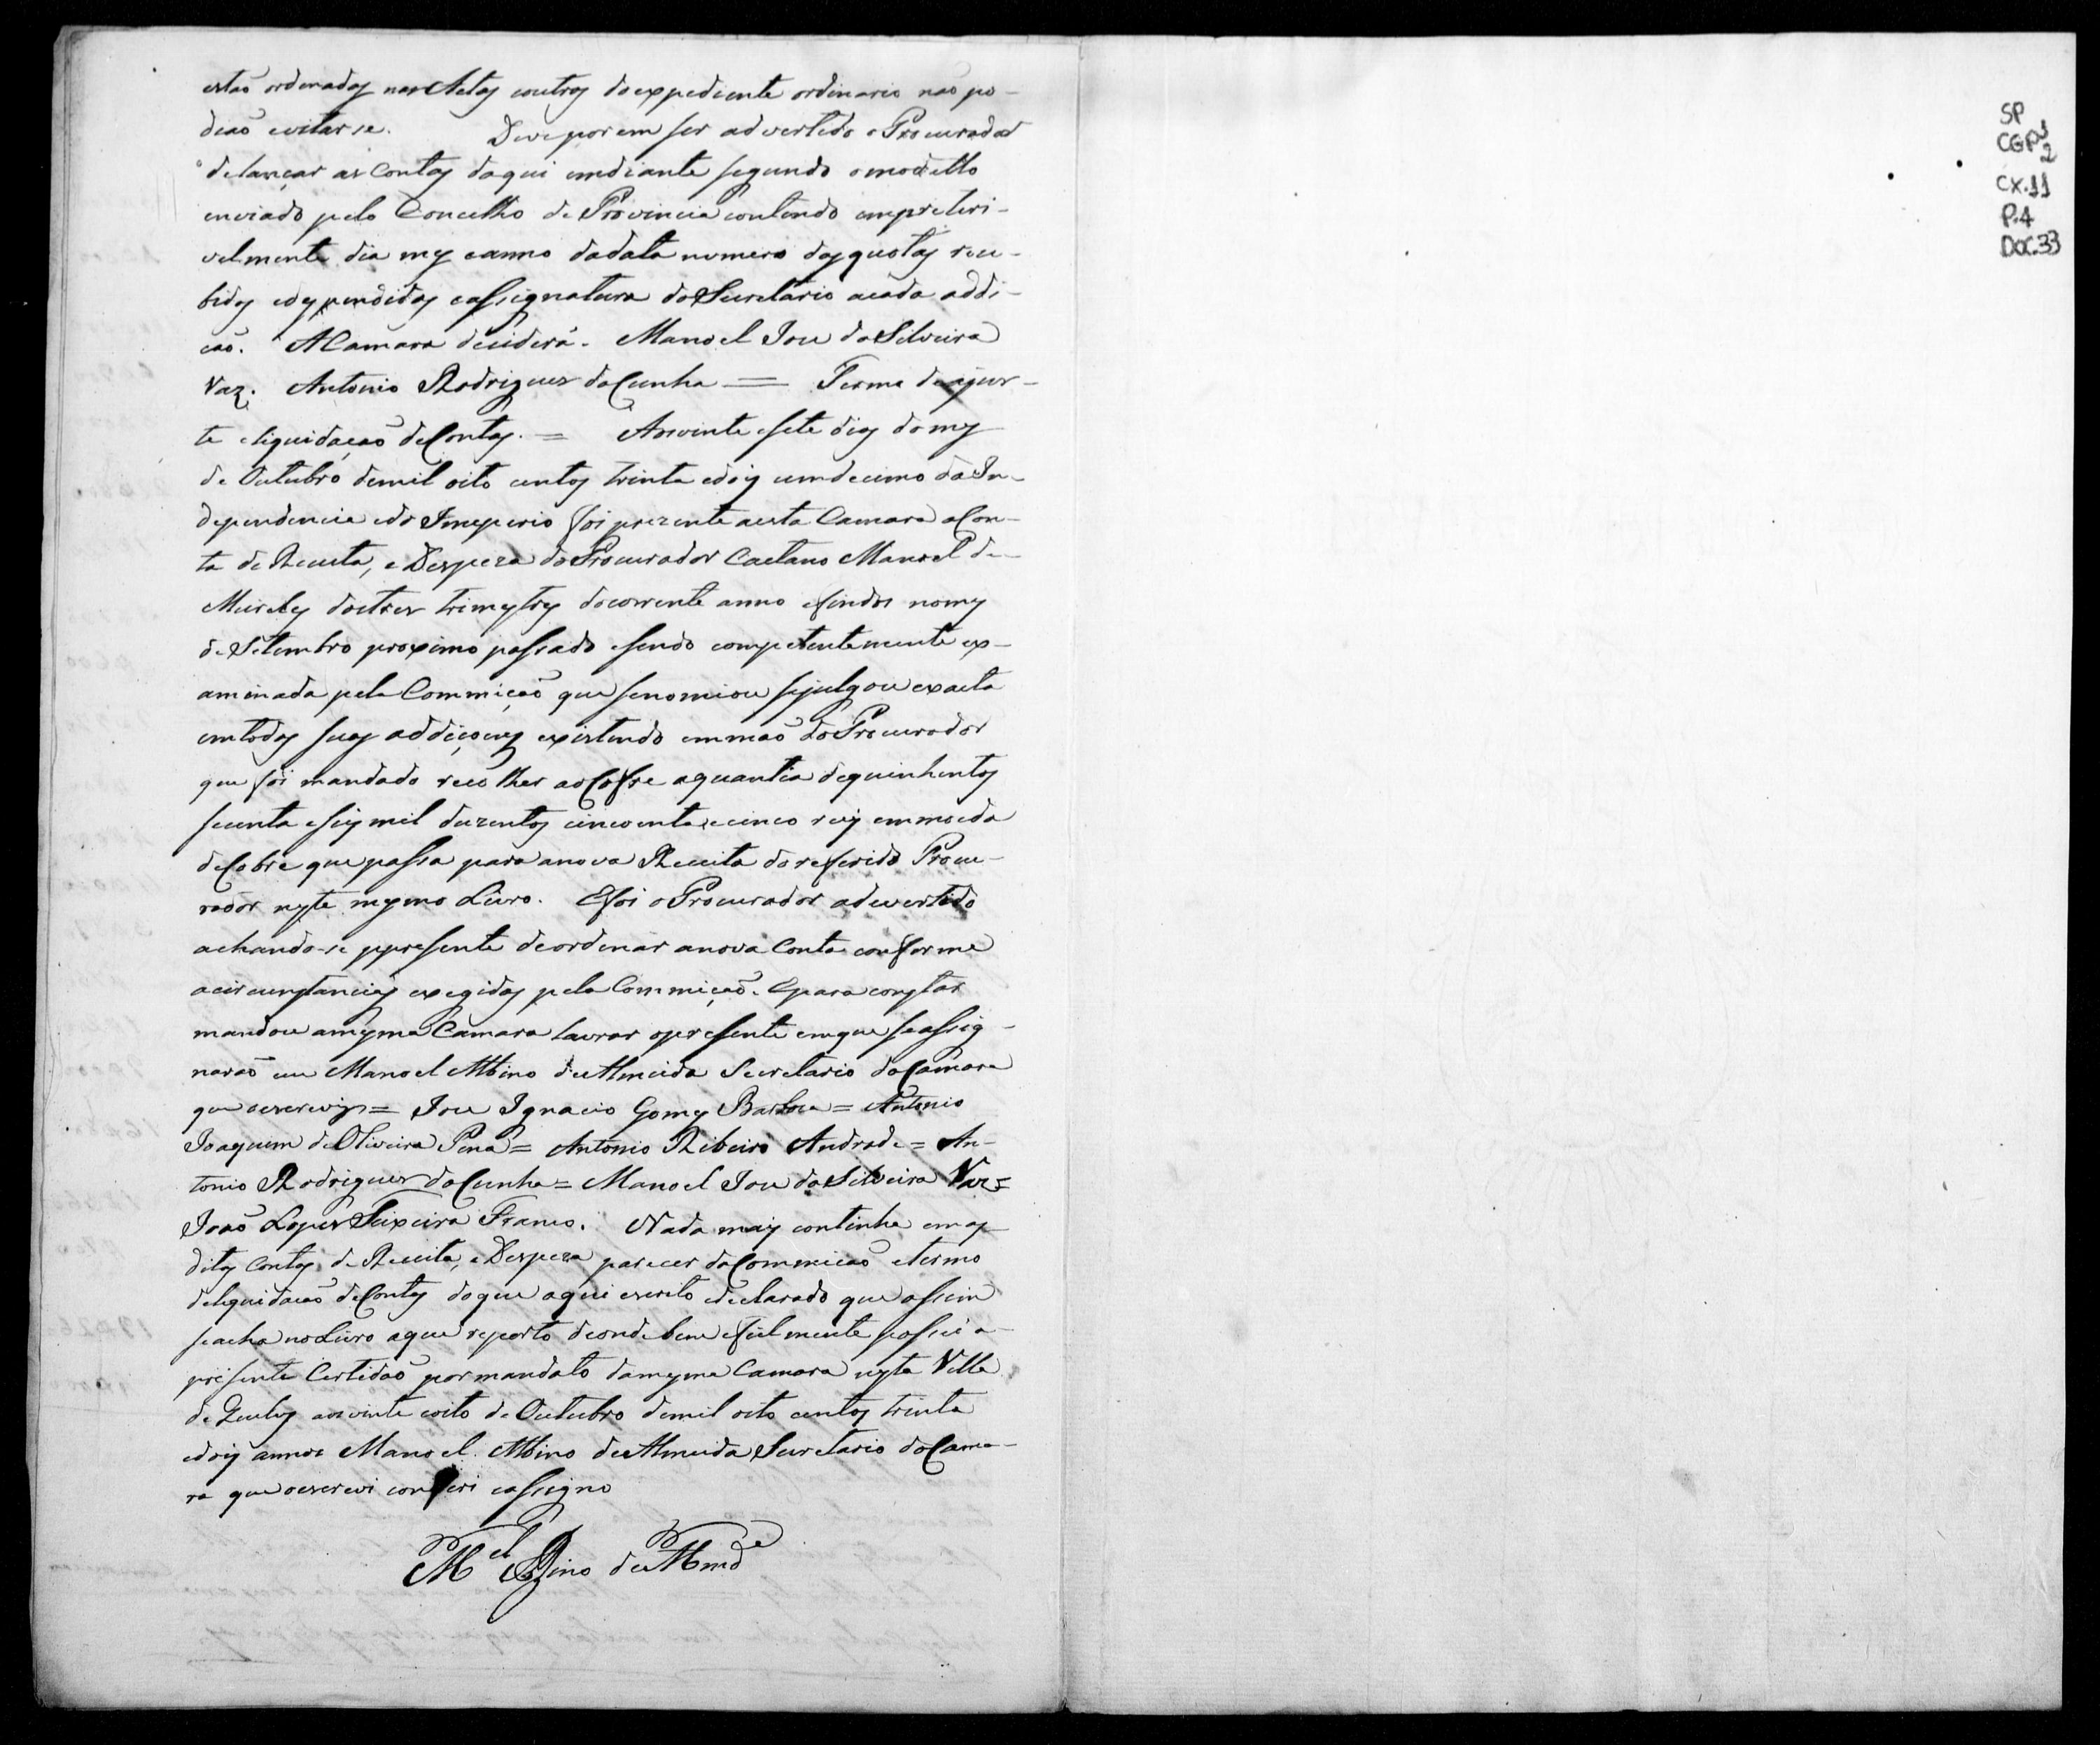 estaõ ordenadas nas Actas e outras do expediente ordinario naõ po-
diaõ evitar se. Deve porem ser advertido o Procurador
de lançar as Contas daqui emdiante segundo o modello
enviado pelo Concelho de Provincia contendo empreteri-
velmente dia mes e anno da data numero das quotas rece-
bidas e despendidas e assignatura do Secretario a cada addi-
caõ. A Camara decidirá. Manoel Joze da Silveira
Vaz. Antonio Rodrigues da Cunha = Termo de ajus-
te e liquidaçaõ de Contas. = Aos vinte e sete dias do mes
de Outubro de mil oito centos trinta e dois undecimo da In-
dependencia e do Imeperio foi prezente a esta Camara a Con-
ta de Receita, e Despeza do Procurador Caetano Manoel de
Meireles dos tres trimestres do corrente anno e findos no mes
de Setembro proximo passado e sendo competentemente ex-
aminada pela Commiçaõ que se nomiou se julgou exacta
em todas suas addiçoens existindo em maõ do Procurador
que foi mandado recolher ao Cofre a quantia de quinhentos
secenta e seis mil duzentos cincoenta e cinco reis em moeda
de Cobre que passa para a nova Receita do referido Procu-
rador neste mesmo Livro. E foi o Procurador advertido
achando-se ppresente de ordenar a nova Conta conforme
a circunstancias exegidas pela Commiçaõ. E para constar
mandou a mesma Camara lavrar o presente em que se assig-
naraõ eu Manoel Albino de Almeida Secretario da Camara
que o escrevi = Joze Ignacio Gomes Barboza = Antonio
Joaquim de Oliveira Pena = Antonio Ribeiro Andrade = An-
tonio Rodrigues da Cunha = Manoel Joze da Silveira Vaz =
Joaõ Lopes Teixeira Franco. Nada mais continha em as
ditas Contas de Receita, e Despeza parecer da Commicaõ e termo
de liquidacaõ de Contas do que aqui escrito e declarado que assim
se acha no Livro a que reporto de onde bem e fielmente passei a
presente Certidaõ por mandato da mesma Camara nesta Villa
de Queluz aos vinte e oito de Outubro de mil oito centos trinta
e dois annos Manoel Albino de Almeida Secretario da Cama-
ra que o escrevi conferi e assigno
M.el Albino de Almd.a
SP
CGP 1/2
CX.11
P.4
DOC.33